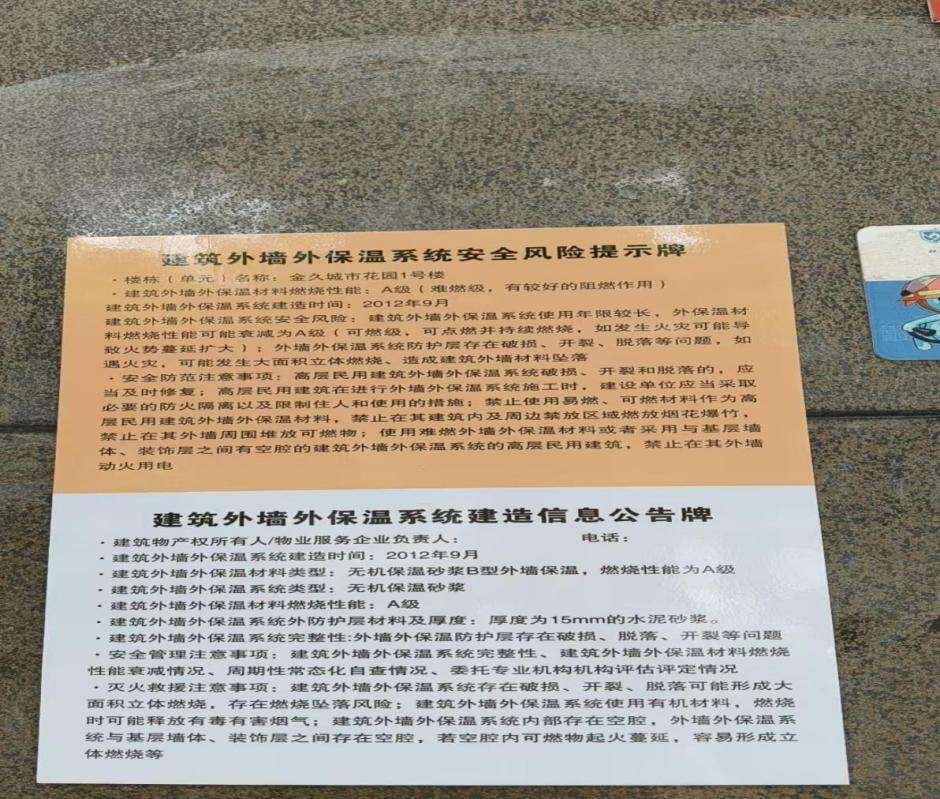 建筑外墙外保温系统安全风险提示牌
·楼栋（单元）名称：金久城市花园1号楼
·建筑外墙外保温材料燃烧性能：A级（难燃级，有较好的阻燃作用）
建筑外墙外保温系统建造时间：2012年9月
建筑外墙外保温系统安全风险：建筑外墙外保温系统使用年限较长，外保温材
料燃烧性能可能衰减为A级（可燃级，可点燃并持续燃烧，如发生火灾可能导
致火势蔓延扩大）；外墙外保温系统防护层存在破损、开裂、脱落等问题，如
遇火灾，可能发生大面积立体燃烧、造成建筑外墙材料坠落
·安全防范注意事项：高层民用建筑外墙外保温系统破损、开裂和脱落的，应
当及时修复；高层民用建筑在进行外墙外保温系统施工时，建设单位应当采取
必要的防火隔离以及限制住人和使用的措施；禁止使用易燃、可燃材料作为高
层民用建筑外墙外保温材料，禁止在其建筑内及周边禁放区域燃放烟花爆竹，
禁止在其外墙周围堆放可燃物；使用难燃外墙外保温材料或者采用与基层墙
体、装饰层之间有空腔的建筑外墙外保温系统的高层民用建筑，禁止在其外墙
动火用电
建筑外墙外保温系统建造信息公告牌
·建筑物产权所有人/物业服务企业负责人： 电话：
·建筑外墙外保温系统建造时间：2012年9月
·建筑外墙外保温材料类型：无机保温砂浆B型外墙保温，燃烧性能为A级
·建筑外墙外保温系统类型：无机保温砂浆
·建筑外墙外保温材料燃烧性能：A级
·建筑外墙外保温系统外防护层材料及厚度：厚度为15mm的水泥砂浆。
·建筑外墙外保温系统完整性:外墙外保温防护层存在破损、脱落、开裂等问题
·安全管理注意事项：建筑外墙外保温系统完整性、建筑外墙外保温材料燃烧
性能衰减情况、周期性常态化自查情况、委托专业机构机构评估评定情况
·灭火救援注意事项：建筑外墙外保温系统存在破损、开裂、脱落可能形成大
面积立体燃烧，存在燃烧坠落风险；建筑外墙外保温系统使用有机材料，燃烧
时可能释放有毒有害烟气；建筑外墙外保温系统内部存在空腔，外墙外保温系
统与基层墙体、装饰层之间存在空腔，若空腔内可燃物起火蔓延，容易形成立
体燃烧等